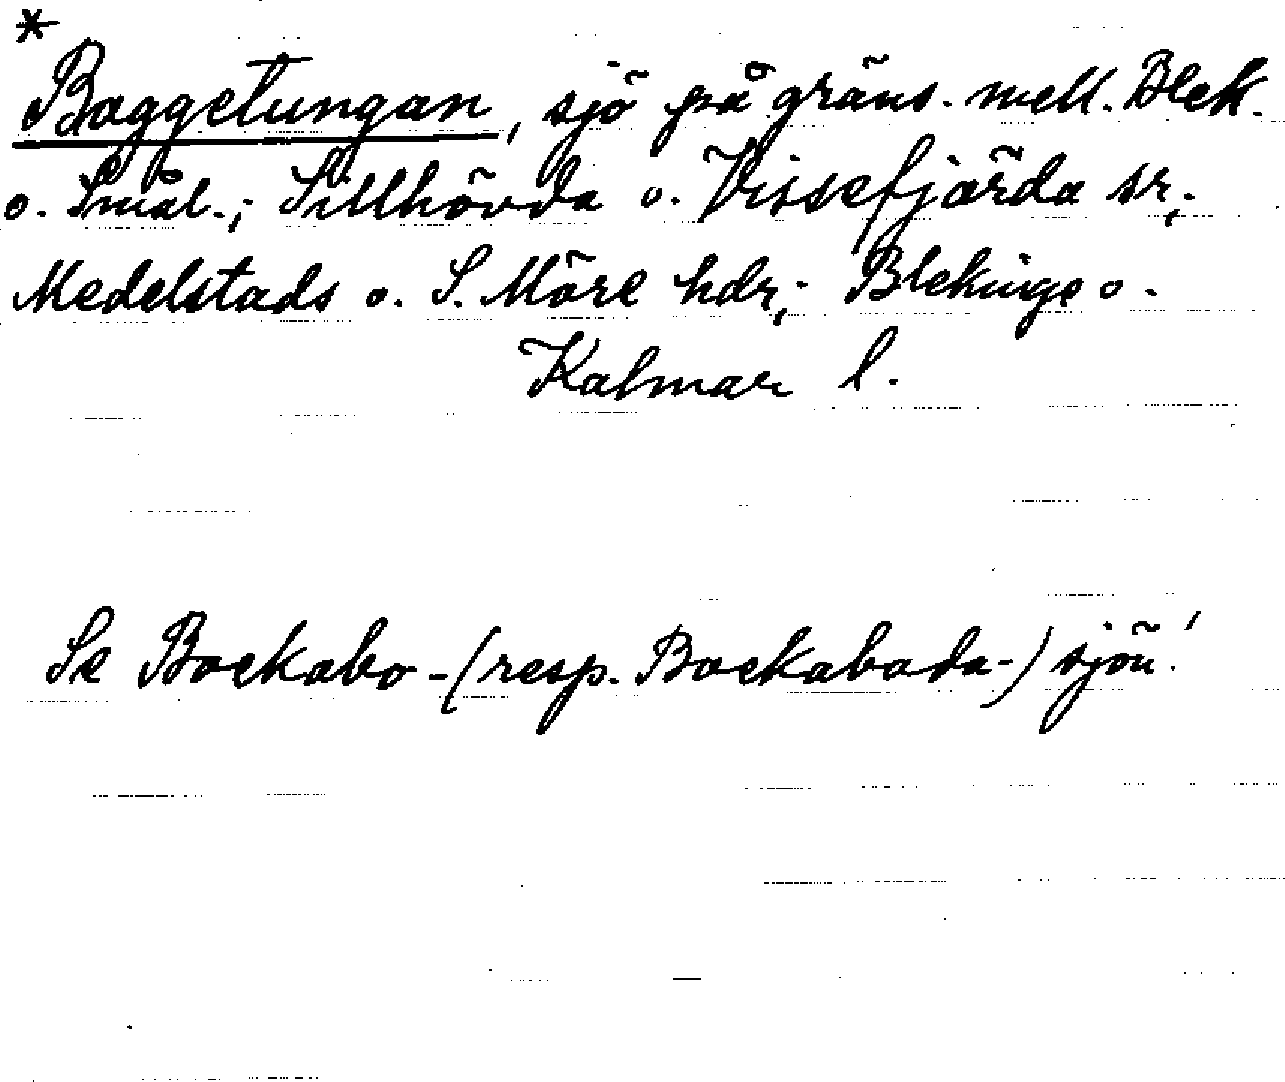 *
Baggetungan, sjö på gräns. mell. Blek.
o. Smål.; Sillhövda o. Vissefjärda sr,;
Medelstads o. S. Möre hdr,; Blekinge o.
Kalmar l.
Se Bockabo-(resp. Bockaboda-) sjön!